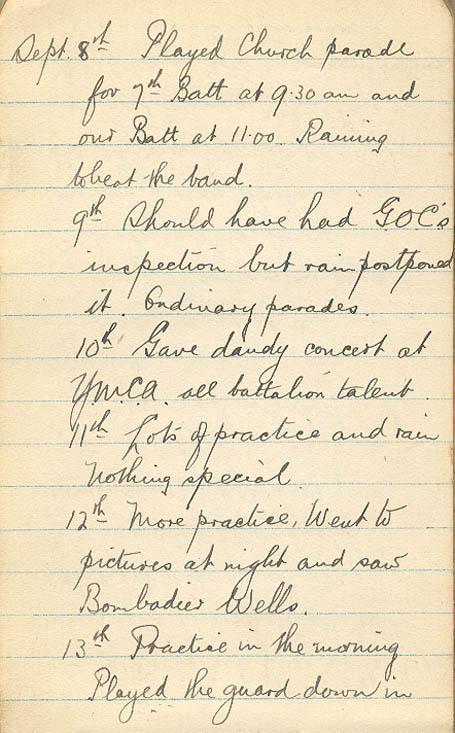 Sept. 8th Played Church parade
for 7th Batt at 9.30 am and
our Batt at 11.00 Raining
to beat the band.
9th Should have had G.O.C's
inspection but rain postponed
it. Ordinary parades.
10th Gave dandy concert at
Y.M.C.A. all battalion talent.
11th Lots of practice and rain
Nothing special
12th More practice, Went to
pictures at night and saw
Bombadier Wells.
13th Practice in the morning
Played the guard down in